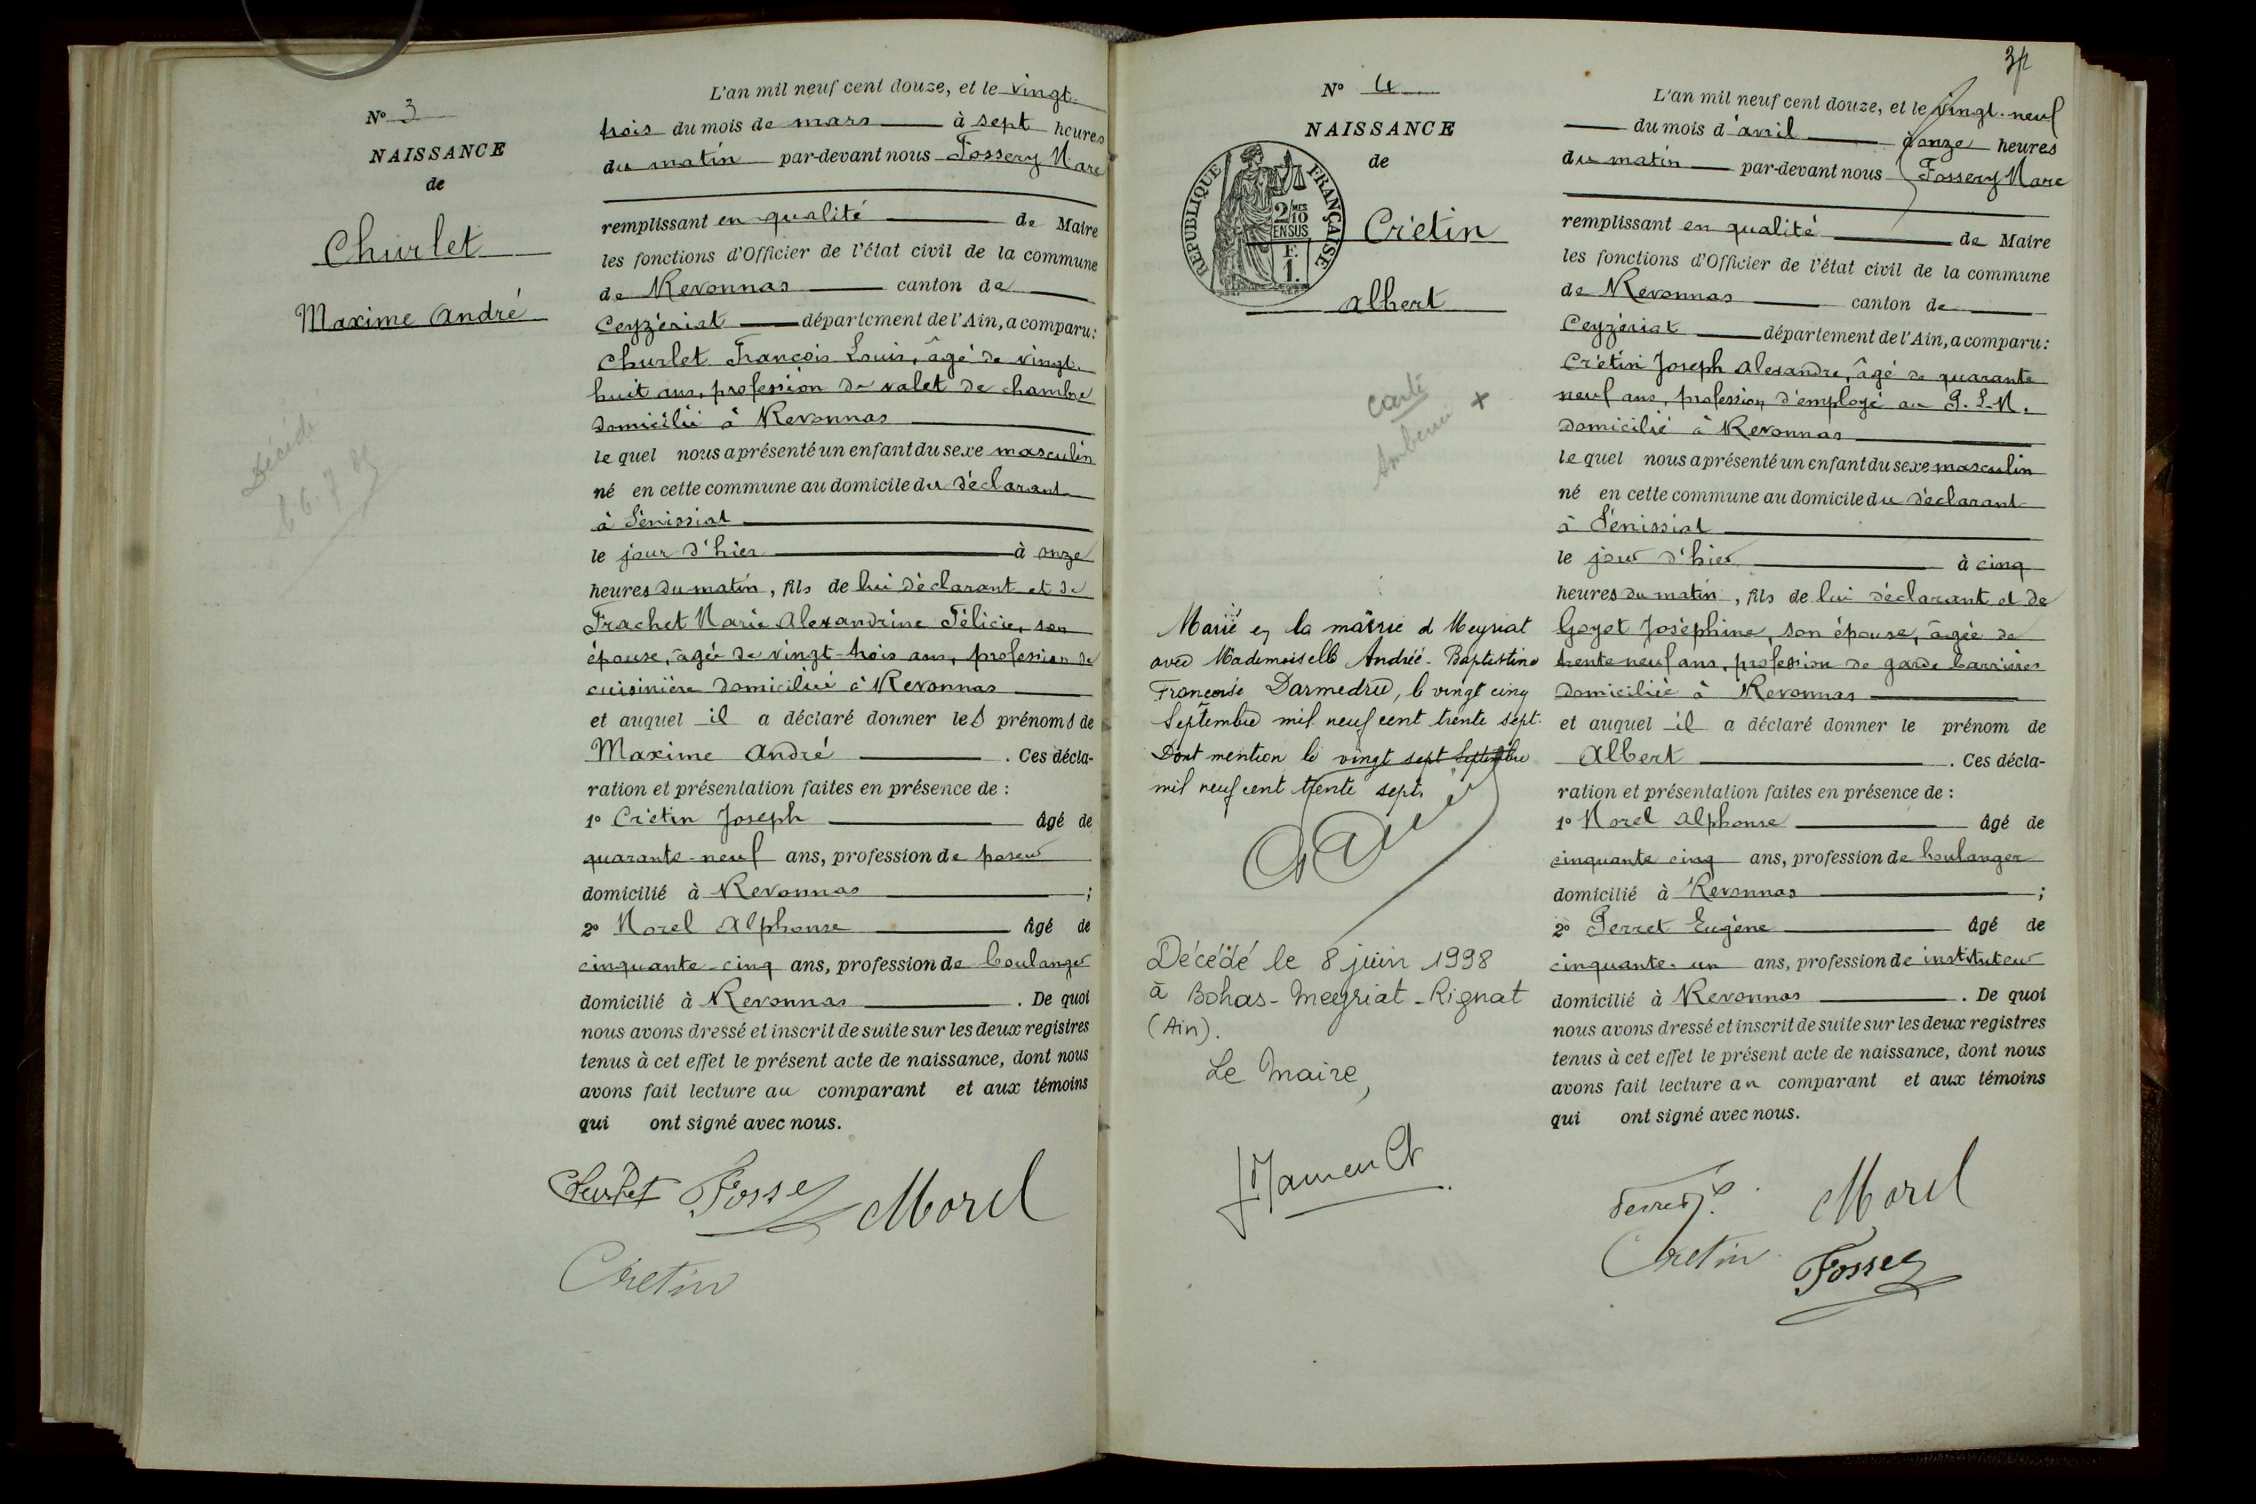 N° 3
NAISSANCE
de
Churlet
Maxime André
Décédé
L'an mil neuf cent douze, et le vingt-
trois du mois de mars à sept heures
du matin par-devant nous Fossery Marc
remplissant en qualité de Maire
les fonctions d'Officier de l'état civil de la commune
de Revonnas canton de
Ceyzériat département de l'Ain, a comparu:
Churlet François Louis, âgé de vingt-
huit ans, profession de valet de chambre
domicilié à Revonnas
le quel nous a présenté un enfant du sexe masculin
né en cette commune au domicile du déclarant
à Sénissiat
le jour d'hier à onze
heures du matin, fils de lui déclarant et de
Frachet Marie Alexandrine Félicie, son
épouse, âgée de vingt-trois ans, profession de
cuisinière domiciliée à Revonnas
et auquel il a déclaré donner les prénoms de
Maxime André . Ces décla-
ration et présentation faites en présence de :
1° Crétin Joseph âgé de
quarante-neuf ans, profession de poseur
domicilié à Revonnas ;
2° Morel Alphonse âgé de
cinquante-cinq ans, profession de boulanger
domicilié à Revonnas . De quoi
nous avons dressé et inscrit de suite sur les deux registres
tenus à cet effet le présent acte de naissance, dont nous
avons fait lecture au comparant et aux témoins
qui ont signé avec nous.
Churlet Fossery Morel
Crétin
34
N° 4
NAISSANCE
de
RÉPUBLIQUE FRANÇAISE
2/10 MES
EN SUS
F.
1.
Crétin
Albert
carte
Ambérieu x
Marié en la mairie de Meyriat
avec Mademoiselle Andrée-Baptistine
Françoise Darmedru, le vingt cinq
Septembre mil neuf cent trente sept.
Dont mention le vingt sept Septembre
mil neuf cent trente sept.
Décédé le 8 juin 1998
à Bohas-Meyriat-Rignat
(Ain).
Le Maire,
L'an mil neuf cent douze, et le vingt-neuf
du mois d'avril à onze heures
du matin par-devant nous Fossery Marc
remplissant en qualité de Maire
les fonctions d'Officier de l'état civil de la commune
de Revonnas canton de
Ceyzériat département de l'Ain, a comparu:
Crétin Joseph Alexandre, âgé de quarante
neuf ans, profession d'employé au P.L.M.
domicilié à Revonnas
le quel nous a présenté un enfant du sexe masculin
né en cette commune au domicile du déclarant
à Sénissiat
le jour d'hier à cinq
heures du matin, fils de lui déclarant et de
Goyet Joséphine, son épouse, âgée de
trente neuf ans, profession de garde barrières
domiciliée à Revonnas
et auquel il a déclaré donner le prénom de
Albert . Ces décla-
ration et présentation faites en présence de :
1° Morel Alphonse âgé de
cinquante cinq ans, profession de boulanger
domicilié à Revonnas ;
2° Perret Eugène âgé de
cinquante-un ans, profession de instituteur
domicilié à Revonnas . De quoi
nous avons dressé et inscrit de suite sur les deux registres
tenus à cet effet le présent acte de naissance, dont nous
avons fait lecture au comparant et aux témoins
qui ont signé avec nous.
Perret Morel
Crétin Fossery